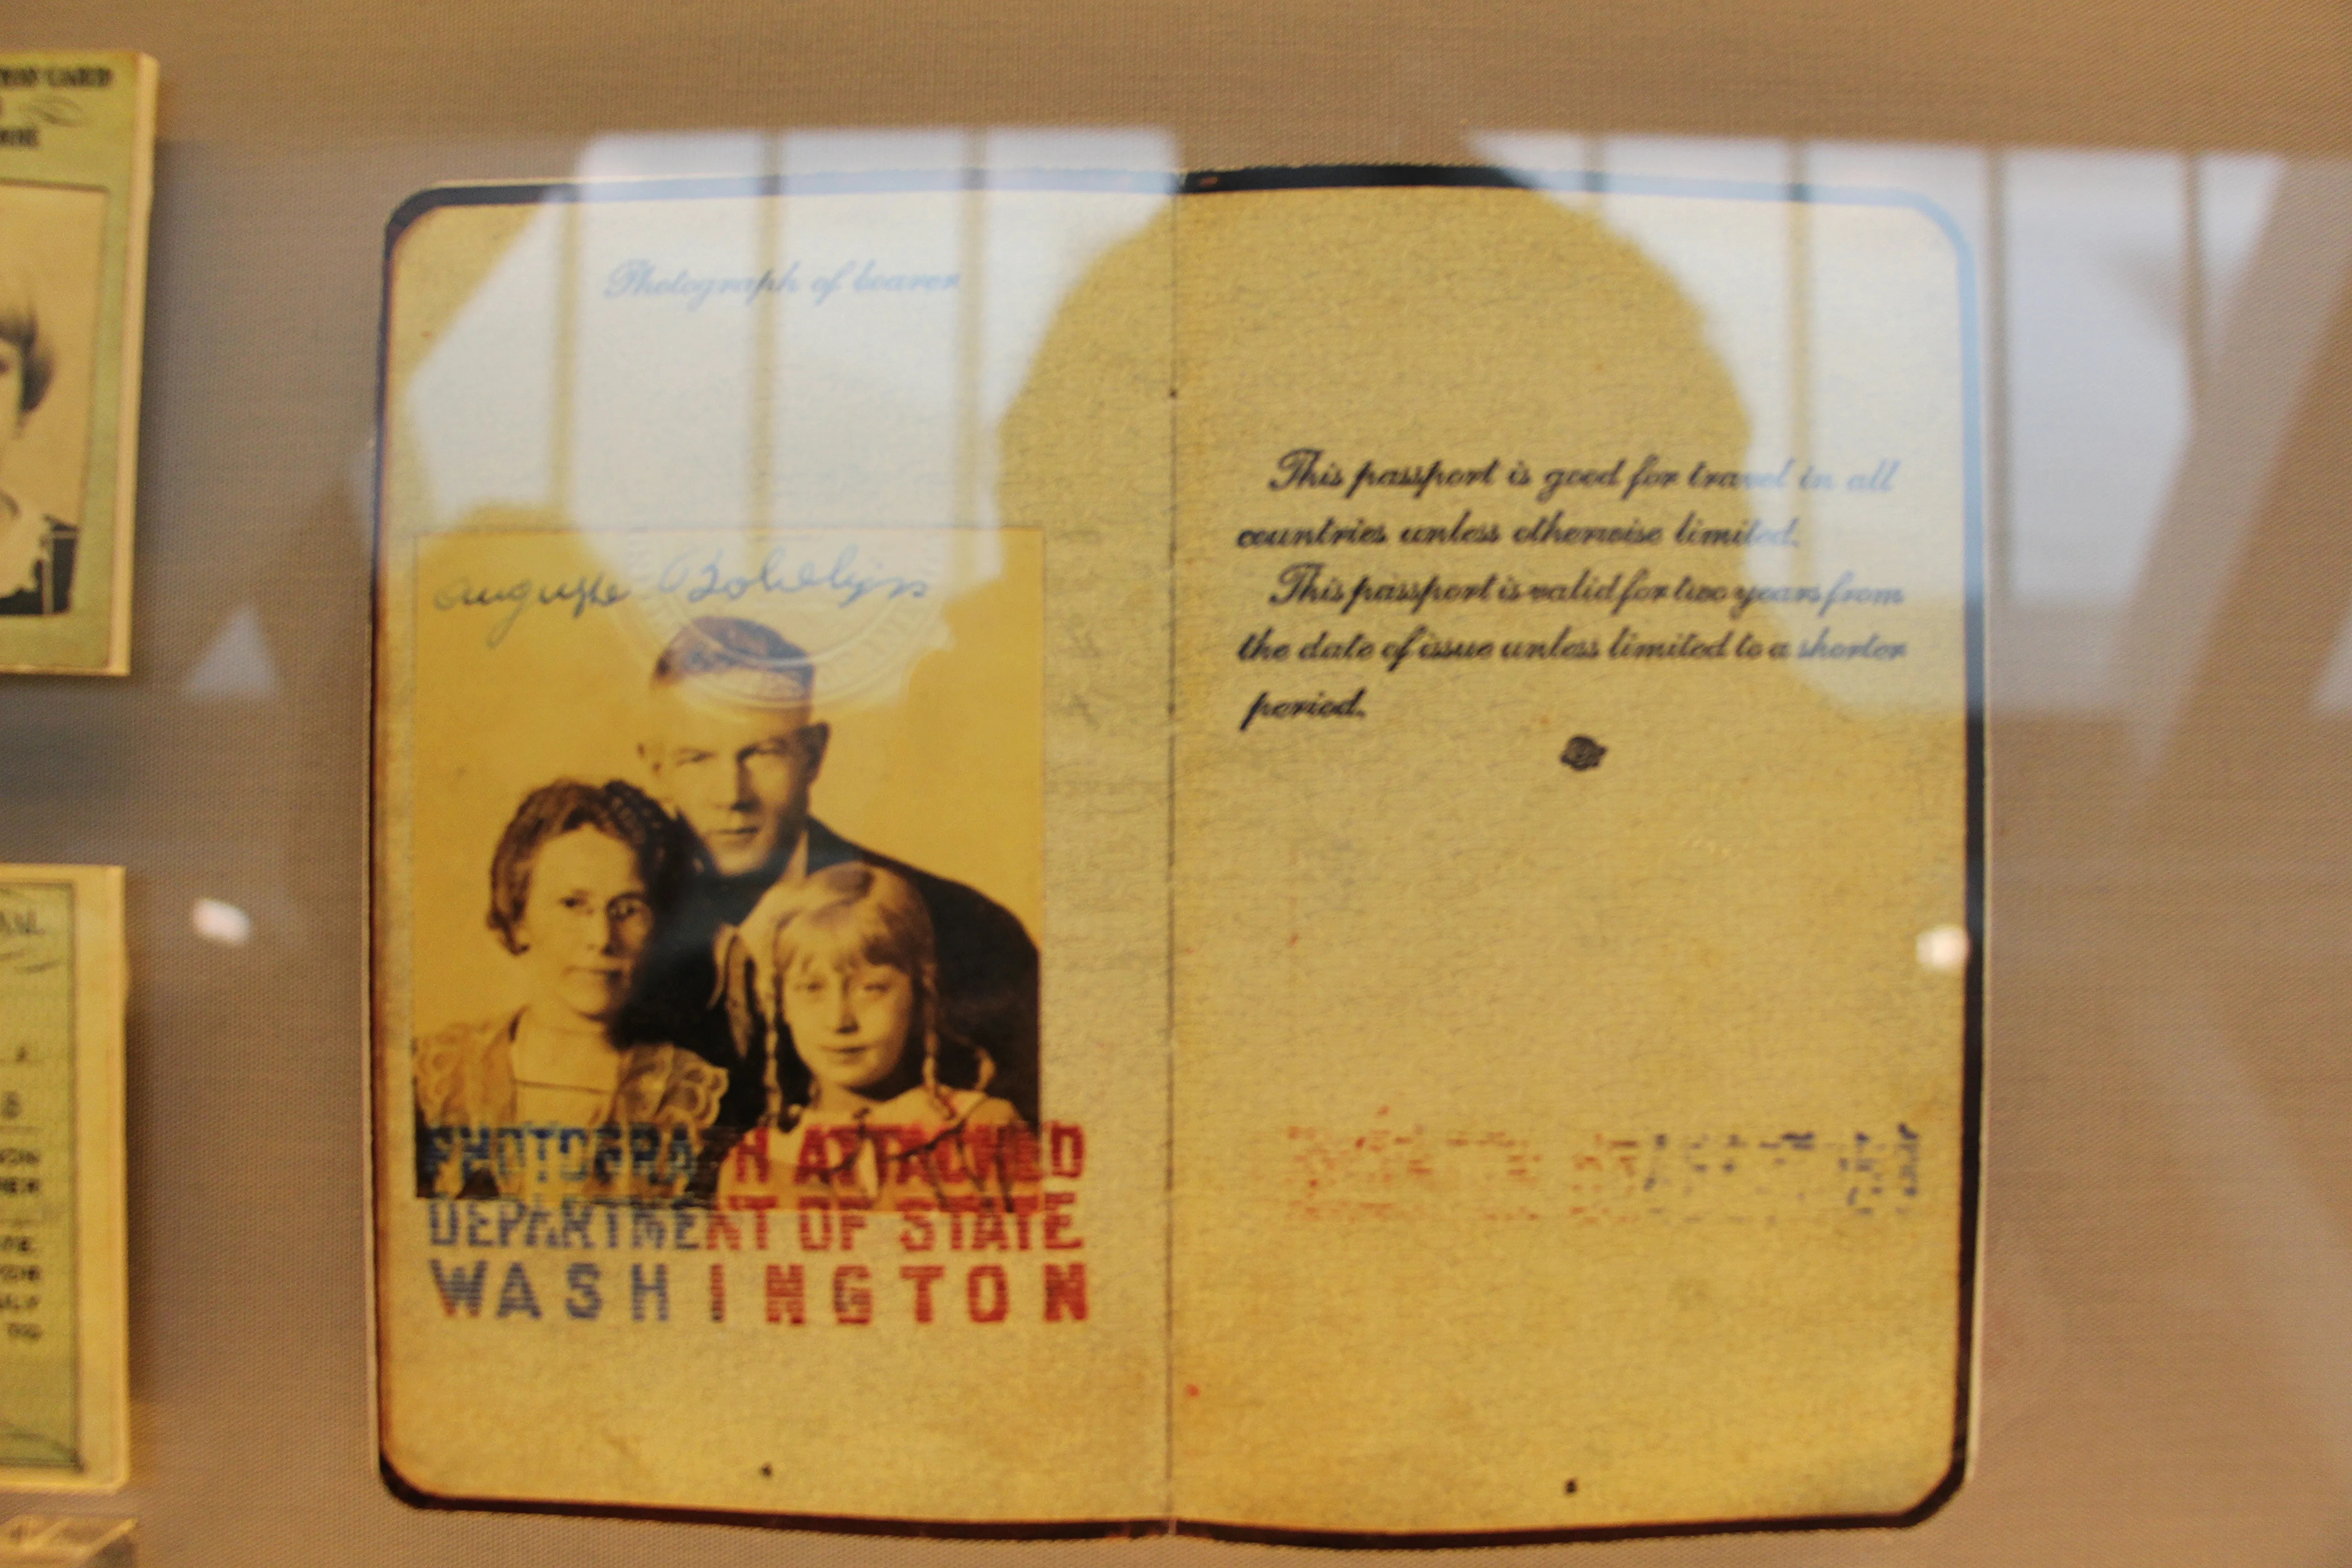 Photograph of bearer
Auguste
PHOTOGRAPH ATTACHED
DEPARTMENT OF STATE
WASHINGTON
This passport is good for travel in all
countries unless otherwise limited.
This passport is valid for two years from
the date of issue unless limited to a shorter
period.
CARD